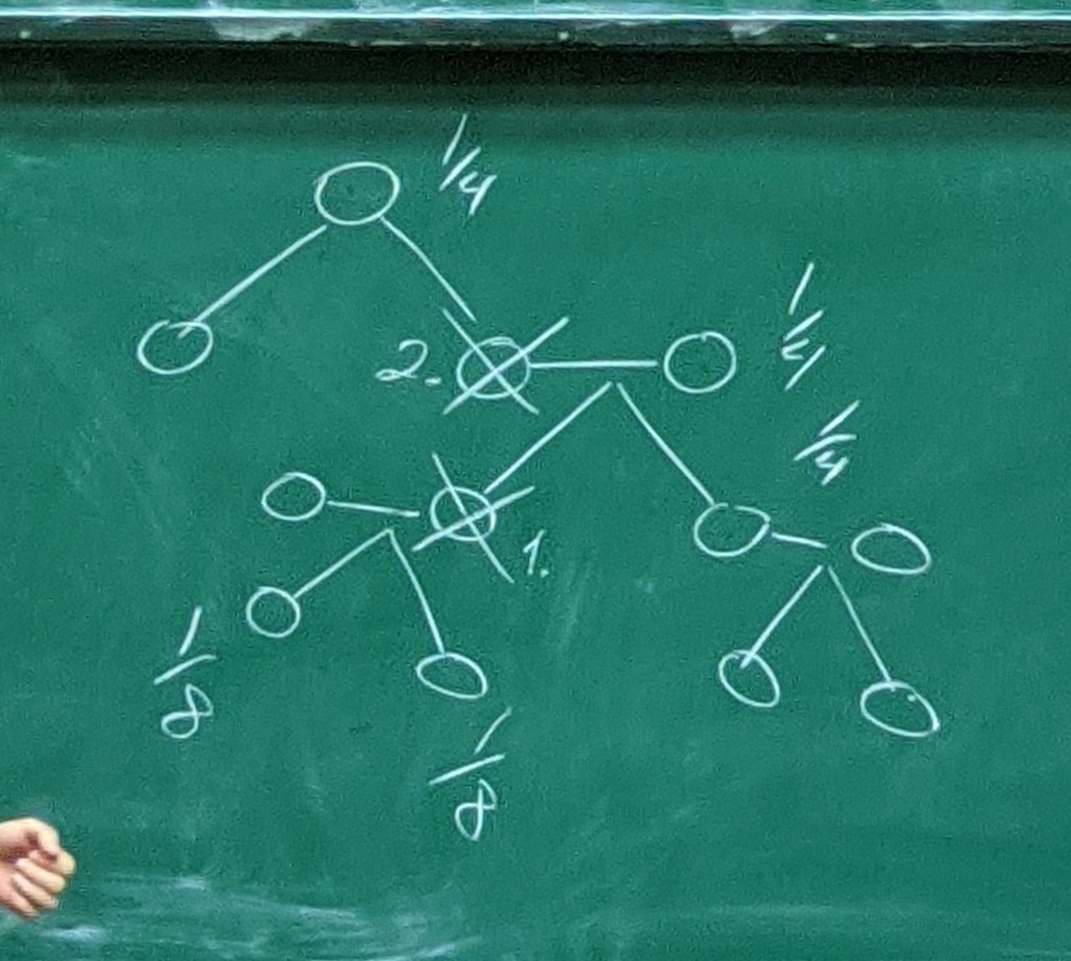 1/4
1/4
2.
1/4
1.
1/8
1/8